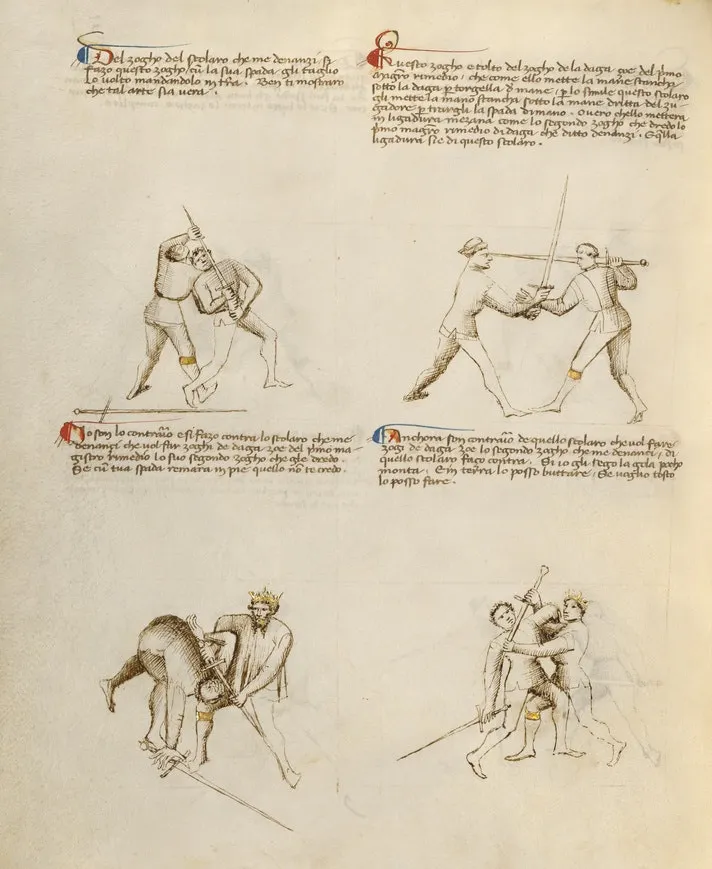 Del zogho del scolaro che me denanzi si
fazo questo zogho / cū la sua spada gli taglio
Lo volto mandandolo in tr̄a . Ben ti mostraro
che tal arte sia vera .
Questo zogho e tolto del zogho de la daga zoe del p̄mo
magro rimedio / che come ello mette la mane stancha
sotto la daga p̄ torgella d̄ mane / p̄ lo simile questo scolaro
gli mette la mano stancha sotto la mane dritta del zu
gadore p̄ trargli la spada di mano . Overo chello mettera
in ligadura mezana come lo segondo zogho che dredo lo
p̄mo magro rimedio di daga che ditto denanzi . E q̄lla
ligadura sie di questo scolaro .
Io son lo contrario e si fazo contra lo scolaro che me
denanci che vol far zoghi de daga zoe del p̄mo ma
gistro rimedio lo suo segondo zogho che gle dredo .
Se cū tua spada remara in pie quello nō te credo .
Anchora son contrario de quello scolaro che vol fare
zogi de daga zoe lo segondo zogho che me denanci / di
quello scolaro faço contra . Si io gli sego la gola pocho
monta . E in terra lo posso buttare / Se voglio tosto
lo posso fare .